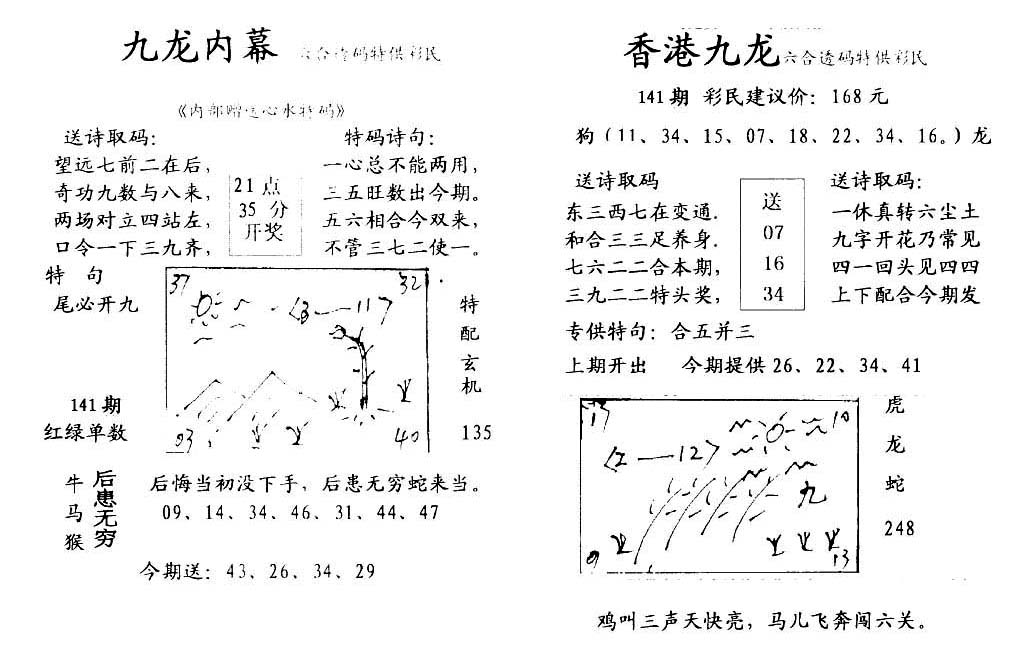 九龙内幕 六合透码特供彩民
《内部赠送心水特码》
送诗取码：
望远七前二在后，
奇功九数与八来，
两场对立四站左，
口令一下三九齐，
21 点
35 分
开奖
特码诗句：
一心总不能两用，
三五旺数出今期。
五六相合今双来，
不管三七二使一。
特 句
尾必开九
141 期
红绿单数
37
32
〈3—11〉
03
40
特
配
玄
机
135
牛
马
猴
后患无穷
后悔当初没下手，后患无穷蛇来当。
09、14、34、46、31、44、47
今期送：43、26、34、29
香港九龙 六合透码特供彩民
141 期 彩民建议价：168 元
狗（11、34、15、07、18、22、34、16。）龙
送诗取码
东三西七在变通．
和合三三足养身．
七六二二合本期，
三九二二特头奖，
送
07
16
34
送诗取码：
一休真转六尘土
九字开花乃常见
四一回头见四四
上下配合今期发
专供特句：合五并三
上期开出 今期提供 26、22、34、41
10
〈2—12〉
九
9
13
虎
龙
蛇
248
鸡叫三声天快亮，马儿飞奔闯六关。